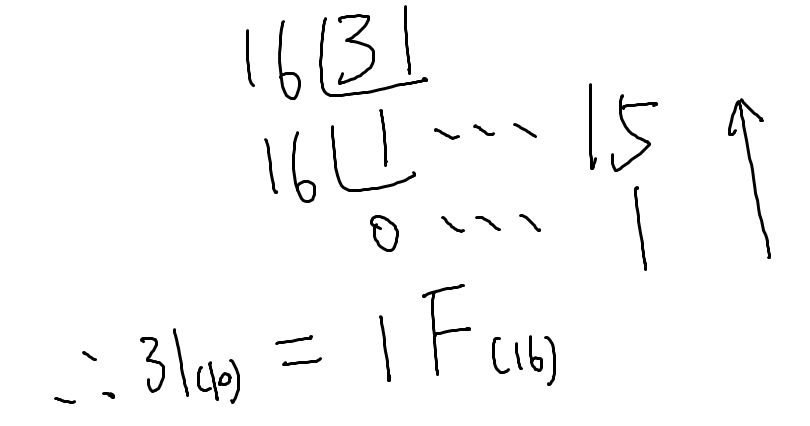 16 31
16 1 ... 15
0 ... 1
∴ 31(10) = 1F(16)